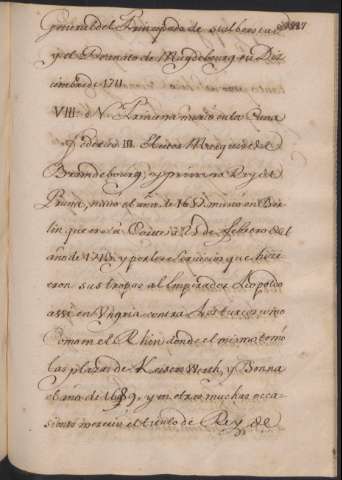 General del Principado de Alberstad
y el Primado de Magdebourg en Di-
ciembre de 1711
VIII. N. murio en la Cuna
Federico III. Elector Marques de
Brandebourg, y primero Rey de
Prusia, nacio el año de 1657 murio en Ber-
lin que era a 25 de Febrero del
año de 1713, y por los servicios que hizie-
ron sus tropas al Emperador Leopoldo
assi en Ungria contra los turcos, como
en el Rhin donde el mismo tomó
las plazas de Keiserwerth, y Bonna
el año de 1689, y en otras muchas occa-
siones merecio el titulo de Rey de